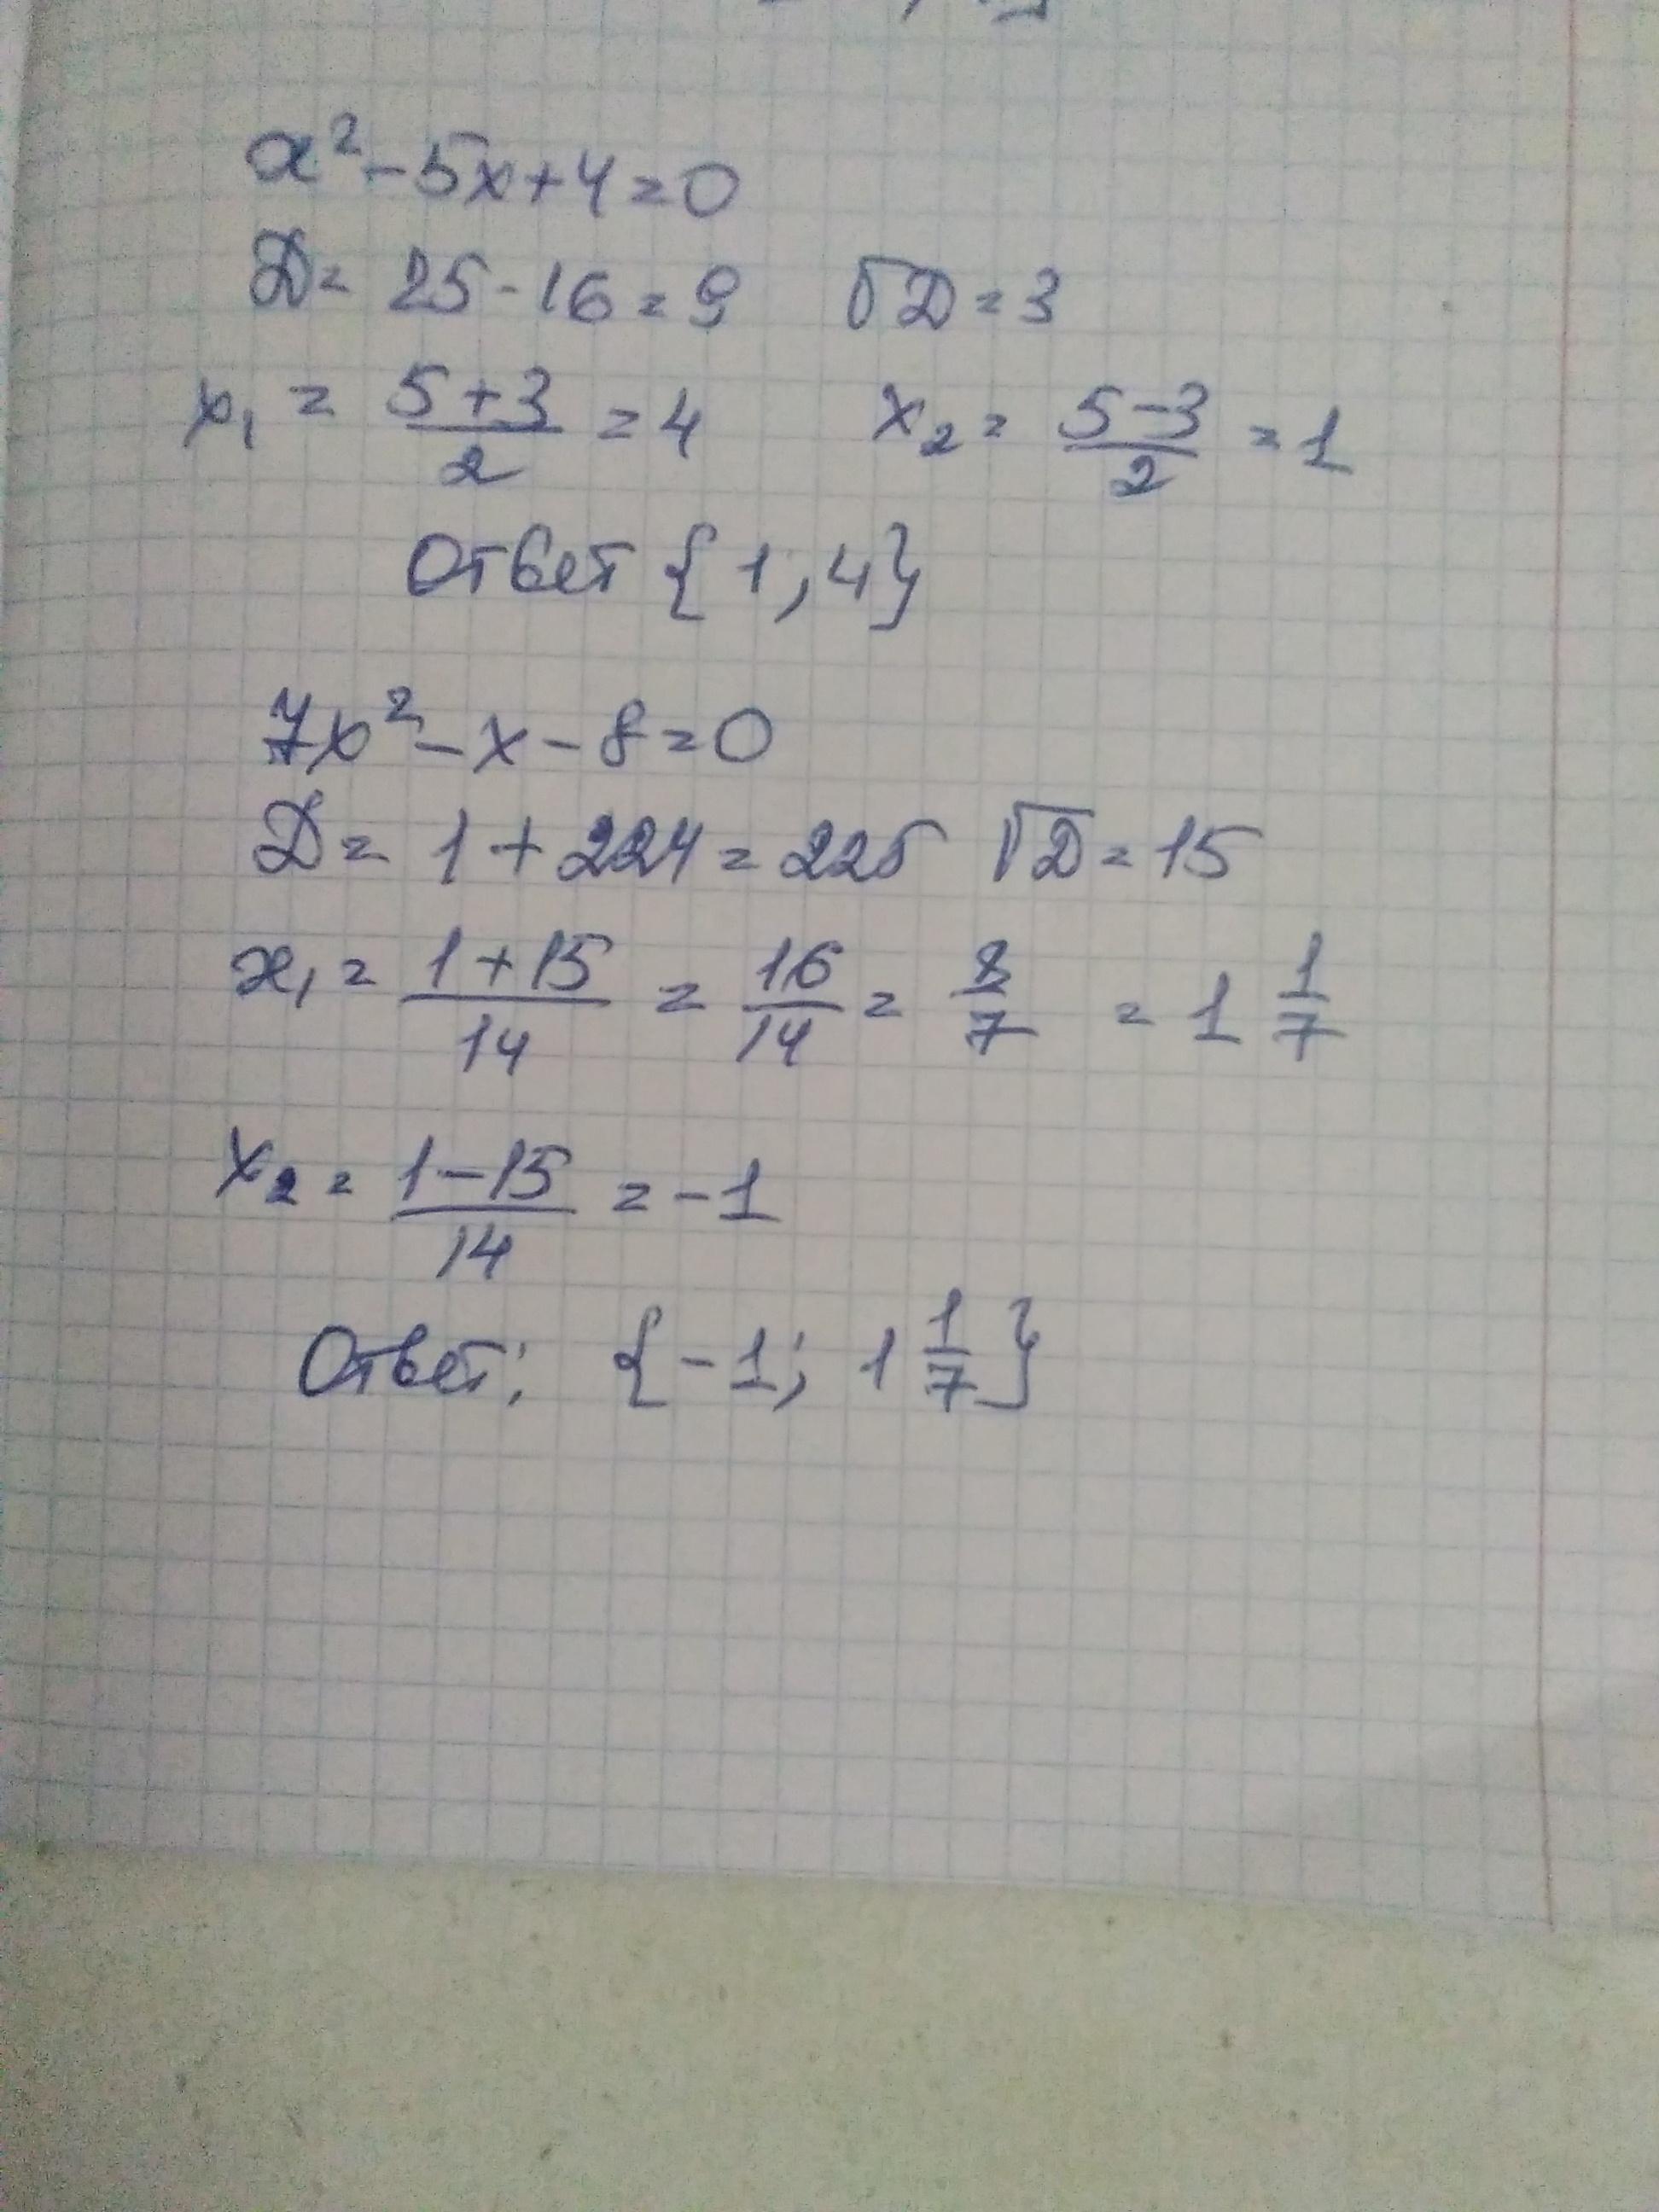 x² - 5x + 4 = 0
D = 25 - 16 = 9 √D = 3
x₁ = (5+3)/2 = 4 x₂ = (5-3)/2 = 1
Ответ {1; 4}
7x² - x - 8 = 0
D = 1 + 224 = 225 √D = 15
x₁ = (1+15)/14 = 16/14 = 8/7 = 1 1/7
x₂ = (1-15)/14 = -1
Ответ: {-1; 1 1/7}